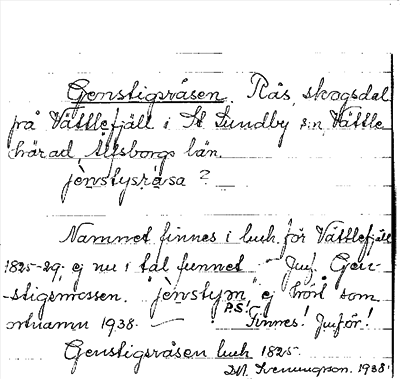 Genstigsråsen. Rås, skogsdal
på Vättlefjäll i St Lundby sn, Vättle
härad, Älfsborgs län.
jènstysråsa ?
Namnet finnes i luch. för Vättlefjäll
1825-29. ej nu i tal funnet - Jmf. Gen-
-stigsmossen. "jènstym" ej hört som
ortnamn 1938. — P.S! Finnes! Jmför!
Genstigsråsen luch 1825.
D:M. Svenungson. 1938.